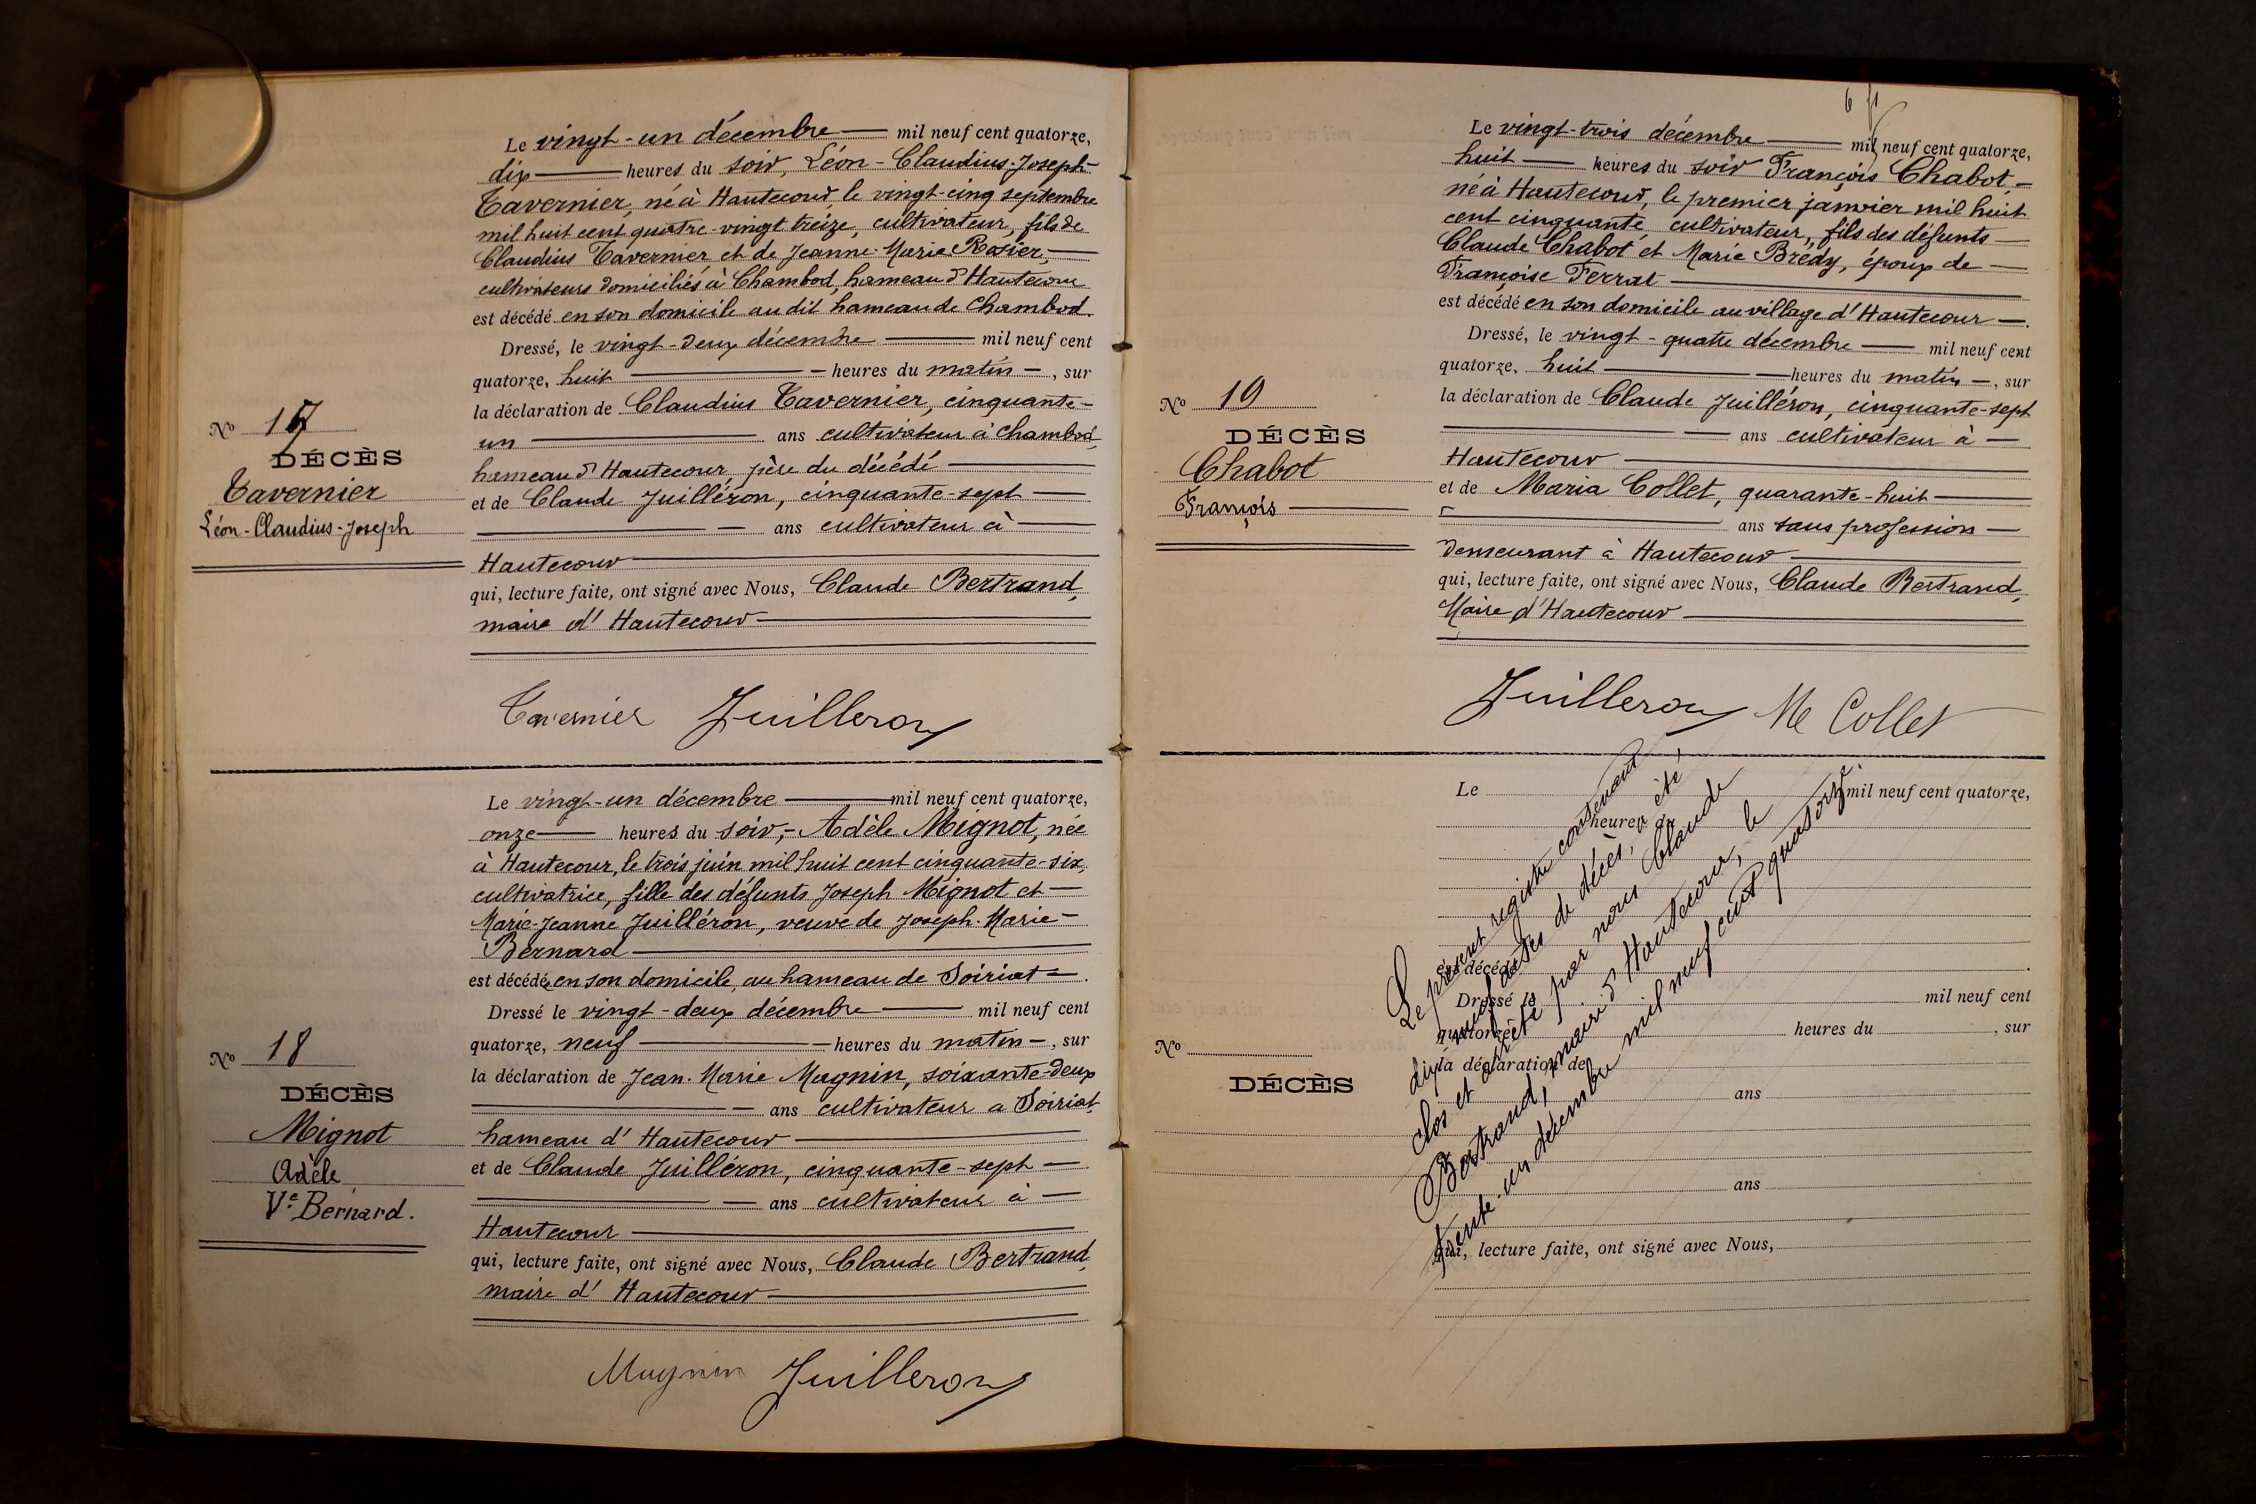 Le vingt-un décembre — mil neuf cent quatorze,
dix — heures du soir, Léon-Claudius-Joseph
Tavernier, né à Hautecour, le vingt-cinq septembre
mil huit cent quatre-vingt treize, cultivateur, fils de
Claudius Tavernier et de Jeanne-Marie Rosier, —
cultivateurs domiciliés à Chambod, hameau d'Hautecour
est décédé en son domicile au dit hameau de Chambod.
Dressé, le vingt-deux décembre — mil neuf cent
quatorze, huit — heures du matin —, sur
la déclaration de Claudius Tavernier, cinquante-
un — ans cultivateur à Chambod,
hameau d'Hautecour, père du décédé —
et de Claude Juilléron, cinquante-sept —
— ans cultivateur à —
Hautecour —
qui, lecture faite, ont signé avec Nous, Claude Bertrand,
maire d'Hautecour —
No 17
DÉCÈS
Tavernier
Léon-Claudius-Joseph
Tavernier Juilleron
Le vingt-un décembre — mil neuf cent quatorze,
onze — heures du soir, - Adèle Mignot, née
à Hautecour, le trois juin mil huit cent cinquante-six,
cultivatrice, fille des défunts Joseph Mignot et —
Marie-Jeanne Juilléron, veuve de Joseph-Marie —
Bernard —
est décédé en son domicile, au hameau de Soiriat —.
Dressé le vingt-deux décembre — mil neuf cent
quatorze, neuf — heures du matin —, sur
la déclaration de Jean-Marie Magnin, soixante-deux
— ans cultivateur a Soiriat,
hameau d'Hautecour —
et de Claude Juilléron, cinquante-sept —
— ans cultivateur à —
Hautecour —
qui, lecture faite, ont signé avec Nous, Claude Bertrand,
maire d'Hautecour —
No 18
DÉCÈS
Mignot
Adèle
Ve Bernard.
Magnin Juilleron
6
Le vingt-trois décembre — mil neuf cent quatorze,
huit — heures du soir François Chabot, —
né à Hautecour, le premier janvier mil huit
cent cinquante, cultivateur, fils des défunts —
Claude Chabot et Marie Brédy, époux de —
Françoise Ferrat —
est décédé en son domicile au village d'Hautecour —.
Dressé, le vingt-quatre décembre — mil neuf cent
quatorze, huit — heures du matin —, sur
la déclaration de Claude Juilléron, cinquante-sept
— ans cultivateur à —
Hautecour —
et de Maria Collet, quarante-huit —
— ans sans profession —
demeurant à Hautecour —
qui, lecture faite, ont signé avec Nous, Claude Bertrand,
Maire d'Hautecour —
No 19
DÉCÈS
Chabot
François —
Juilleron M Collet
Le mil neuf cent quatorze,
heures du
est décédé
Dressé le mil neuf cent
quatorze, heures du , sur
la déclaration de
ans
ans
qui, lecture faite, ont signé avec Nous,
No
DÉCÈS
Le présent registre contenant
dix neuf actes de décès, a été
clos et arrêté par nous Claude
Bertrand, maire d'Hautecour, le
trente-un décembre mil neuf cent quatorze.